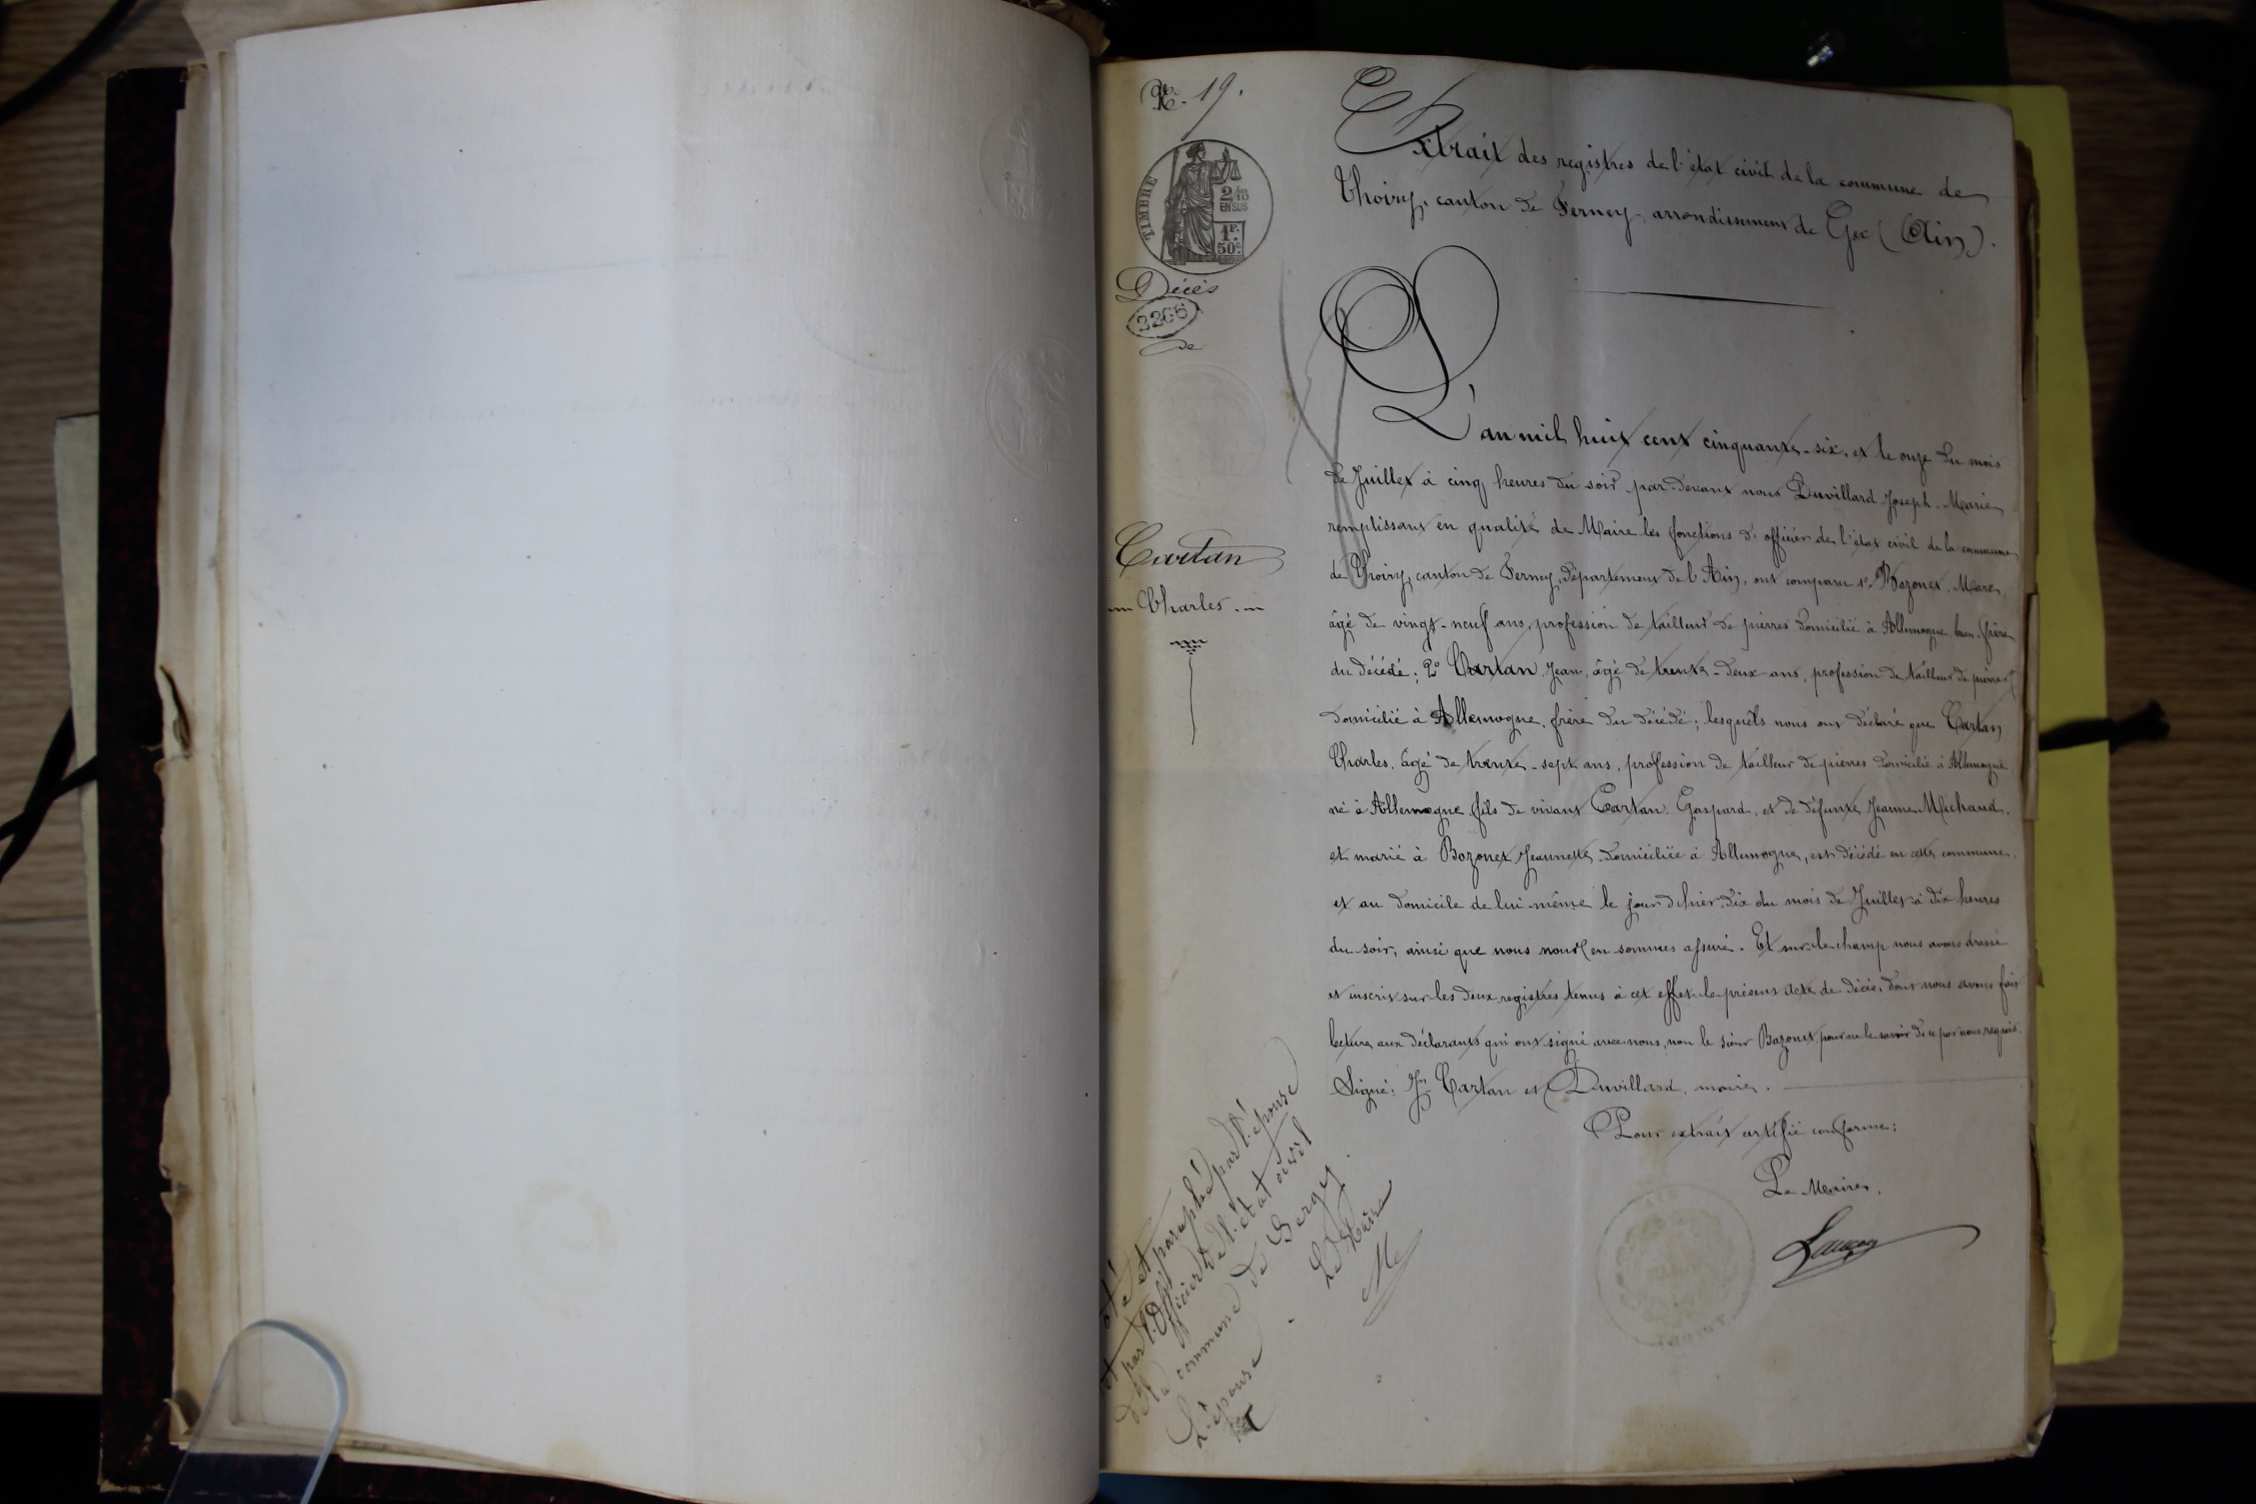 No. 19.
TIMBRE
2/10
EN SUS
1F.
50c.
Décès
2266
de
Cartan
Charles.
Extrait des registres de l'état civil de la commune de
Thoiry, canton de Ferney, arrondissement de Gex (Ain).
L'an mil huit cent cinquante-six, et le onze du mois
de Juillet à cinq heures du soir par-devant nous Duvillard Joseph-Marie
remplissant en qualité de Maire les fonctions d'officier de l'état civil de la commune
de Thoiry, canton de Ferney, département de l'Ain, ont comparu 1° Bozonet, Marc,
âgé de vingt-neuf ans, profession de tailleur de pierres domicilié à Allemogne beau-frère
du décédé; 2° Cartan Jean, âgé de trente-deux ans, profession de tailleur de pierres
domicilié à Allemogne, frère du décédé; lesquels nous ont déclaré que Cartan
Charles, âgé de trente-sept ans, profession de tailleur de pierres domicilié à Allemogne
né à Allemogne fils de vivant Cartan Gaspard, et de défunte Jeanne Michaud,
et marié à Bozonet Jeannette domiciliée à Allemogne, est décédé en cette commune,
et au domicile de lui-même le jour d'hier dix du mois de Juillet à dix heures
du soir, ainsi que nous nous en sommes assuré. Et sur-le-champ nous avons dressé
et inscrit sur les deux registres tenus à cet effet le présent acte de décès, dont nous avons fait
lecture aux déclarants qui ont signé avec nous, non le sieur Bozonet pour ne le savoir de ce par nous requis.
Signé: Jn Cartan et Duvillard, maire.
Pour extrait certifié conforme:
Le Maire,
et paraphé par l'épouse
et par l'Officier de l'état civil
de la commune de Sergy.
L'épouse
Le Maire